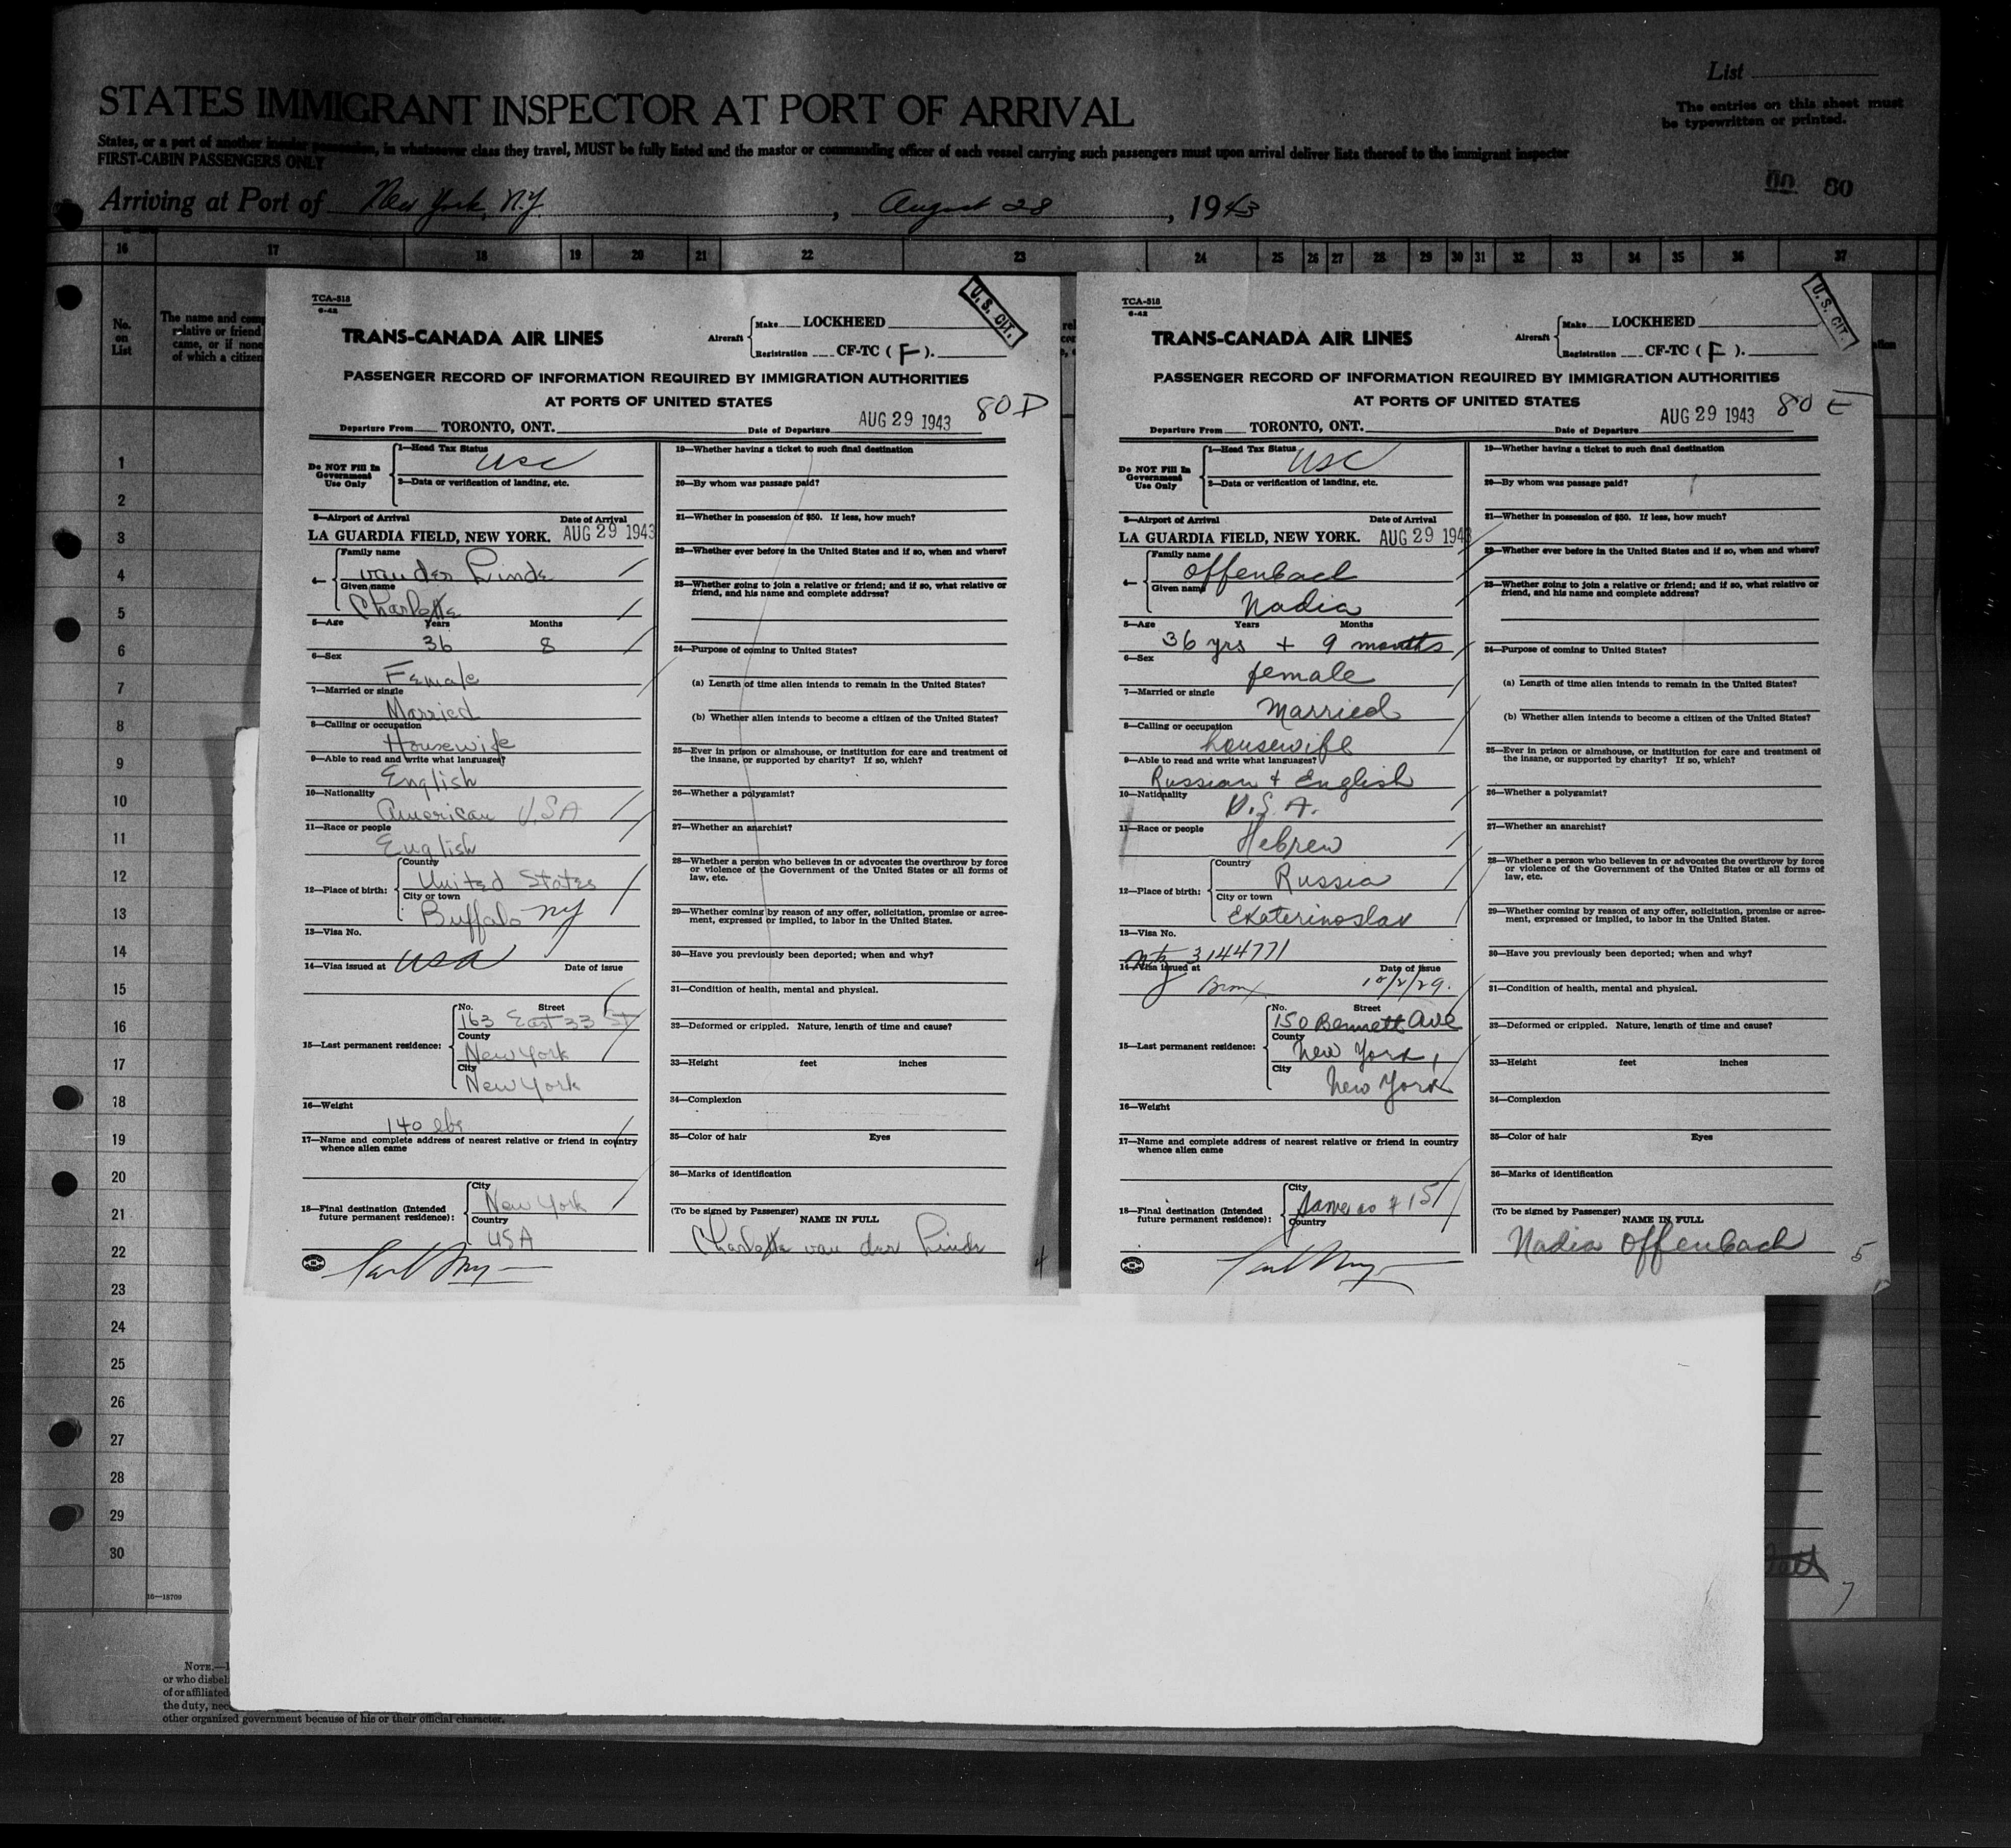 List
STATES IMMIGRANT INSPECTOR AT PORT OF ARRIVAL
The entries on this sheet must
be typewritten or printed.
States, or a port of another insular possession, in whatsoever class they travel, MUST be fully listed and the master or commanding officer of each vessel carrying such passengers must upon arrival deliver lists thereof to the immigrant inspector
FIRST-CABIN PASSENGERS ONLY
80
Arriving at Port of New York, N.Y. , August 28 , 1943
16 17 18 19 20 21 22 23 24 25 26 27 28 29 30 31 32 33 34 35 36 37
No.
on
List
The name and comp
relative or friend
came, or if none
of which a citizen
1
2
3
4
5
6
7
8
9
10
11
12
13
14
15
16
17
18
19
20
21
22
23
24
25
26
27
28
29
30
16—18709
NOTE.—
or who disbel
of or affiliated
the duty, nec
other organized government because of his or their official character.
TCA-518
6-42
U.S. CIT.
TRANS-CANADA AIR LINES
Aircraft
Make LOCKHEED
Registration CF-TC ( F ).
PASSENGER RECORD OF INFORMATION REQUIRED BY IMMIGRATION AUTHORITIES
AT PORTS OF UNITED STATES
80 D
Departure From TORONTO, ONT. Date of Departure AUG 29 1943
Do NOT Fill In
Government
Use Only
1—Head Tax Status
USC
2—Data or verification of landing, etc.
3—Airport of Arrival Date of Arrival
LA GUARDIA FIELD, NEW YORK. AUG 29 1943
4—
Family name
van der Linde
Given name
Charlotte
5—Age Years Months
36 8
6—Sex
Female
7—Married or single
Married
8—Calling or occupation
Housewife
9—Able to read and write what languages?
English
10—Nationality
American U.S.A
11—Race or people
English
12—Place of birth:
Country
United States
City or town
Buffalo NY
13—Visa No.
USA
14—Visa issued at Date of issue
15—Last permanent residence:
No. Street
163 East 33 St
County
New York
City
New York
16—Weight
140 lbs
17—Name and complete address of nearest relative or friend in country
whence alien came
18—Final destination (Intended
future permanent residence):
City
New York
Country
USA
19—Whether having a ticket to such final destination
20—By whom was passage paid?
21—Whether in possession of $50. If less, how much?
22—Whether ever before in the United States and if so, when and where?
23—Whether going to join a relative or friend; and if so, what relative or
friend, and his name and complete address?
24—Purpose of coming to United States?
(a) Length of time alien intends to remain in the United States?
(b) Whether alien intends to become a citizen of the United States?
25—Ever in prison or almshouse, or institution for care and treatment of
the insane, or supported by charity? If so, which?
26—Whether a polygamist?
27—Whether an anarchist?
28—Whether a person who believes in or advocates the overthrow by force
or violence of the Government of the United States or all forms of
law, etc.
29—Whether coming by reason of any offer, solicitation, promise or agree-
ment, expressed or implied, to labor in the United States.
30—Have you previously been deported; when and why?
31—Condition of health, mental and physical.
32—Deformed or crippled. Nature, length of time and cause?
33—Height feet inches
34—Complexion
35—Color of hair Eyes
36—Marks of identification
(To be signed by Passenger)
NAME IN FULL
Charlotte van der Linde
4
TCA-518
6-42
U.S. CIT.
TRANS-CANADA AIR LINES
Aircraft
Make LOCKHEED
Registration CF-TC ( F ).
PASSENGER RECORD OF INFORMATION REQUIRED BY IMMIGRATION AUTHORITIES
AT PORTS OF UNITED STATES
80 E
Departure From TORONTO, ONT. Date of Departure AUG 29 1943
Do NOT Fill In
Government
Use Only
1—Head Tax Status
USC
2—Data or verification of landing, etc.
3—Airport of Arrival Date of Arrival
LA GUARDIA FIELD, NEW YORK. AUG 29 1943
4—
Family name
Offenbach
Given name
Nadia
5—Age Years Months
36 yrs + 9 months
6—Sex
female
7—Married or single
Married
8—Calling or occupation
housewife
9—Able to read and write what languages?
Russian & English
10—Nationality
U.S.A.
11—Race or people
Hebrew
12—Place of birth:
Country
Russia
City or town
Ekaterinoslav
13—Visa No.
3144771
14—Visa issued at Date of issue
Bronx 10/2/29.
15—Last permanent residence:
No. Street
150 Bennett Ave
County
New York,
City
New York
16—Weight
17—Name and complete address of nearest relative or friend in country
whence alien came
18—Final destination (Intended
future permanent residence):
City
Same as # 15
Country
19—Whether having a ticket to such final destination
20—By whom was passage paid?
21—Whether in possession of $50. If less, how much?
22—Whether ever before in the United States and if so, when and where?
23—Whether going to join a relative or friend; and if so, what relative or
friend, and his name and complete address?
24—Purpose of coming to United States?
(a) Length of time alien intends to remain in the United States?
(b) Whether alien intends to become a citizen of the United States?
25—Ever in prison or almshouse, or institution for care and treatment of
the insane, or supported by charity? If so, which?
26—Whether a polygamist?
27—Whether an anarchist?
28—Whether a person who believes in or advocates the overthrow by force
or violence of the Government of the United States or all forms of
law, etc.
29—Whether coming by reason of any offer, solicitation, promise or agree-
ment, expressed or implied, to labor in the United States.
30—Have you previously been deported; when and why?
31—Condition of health, mental and physical.
32—Deformed or crippled. Nature, length of time and cause?
33—Height feet inches
34—Complexion
35—Color of hair Eyes
36—Marks of identification
(To be signed by Passenger)
NAME IN FULL
Nadia Offenbach
5
7